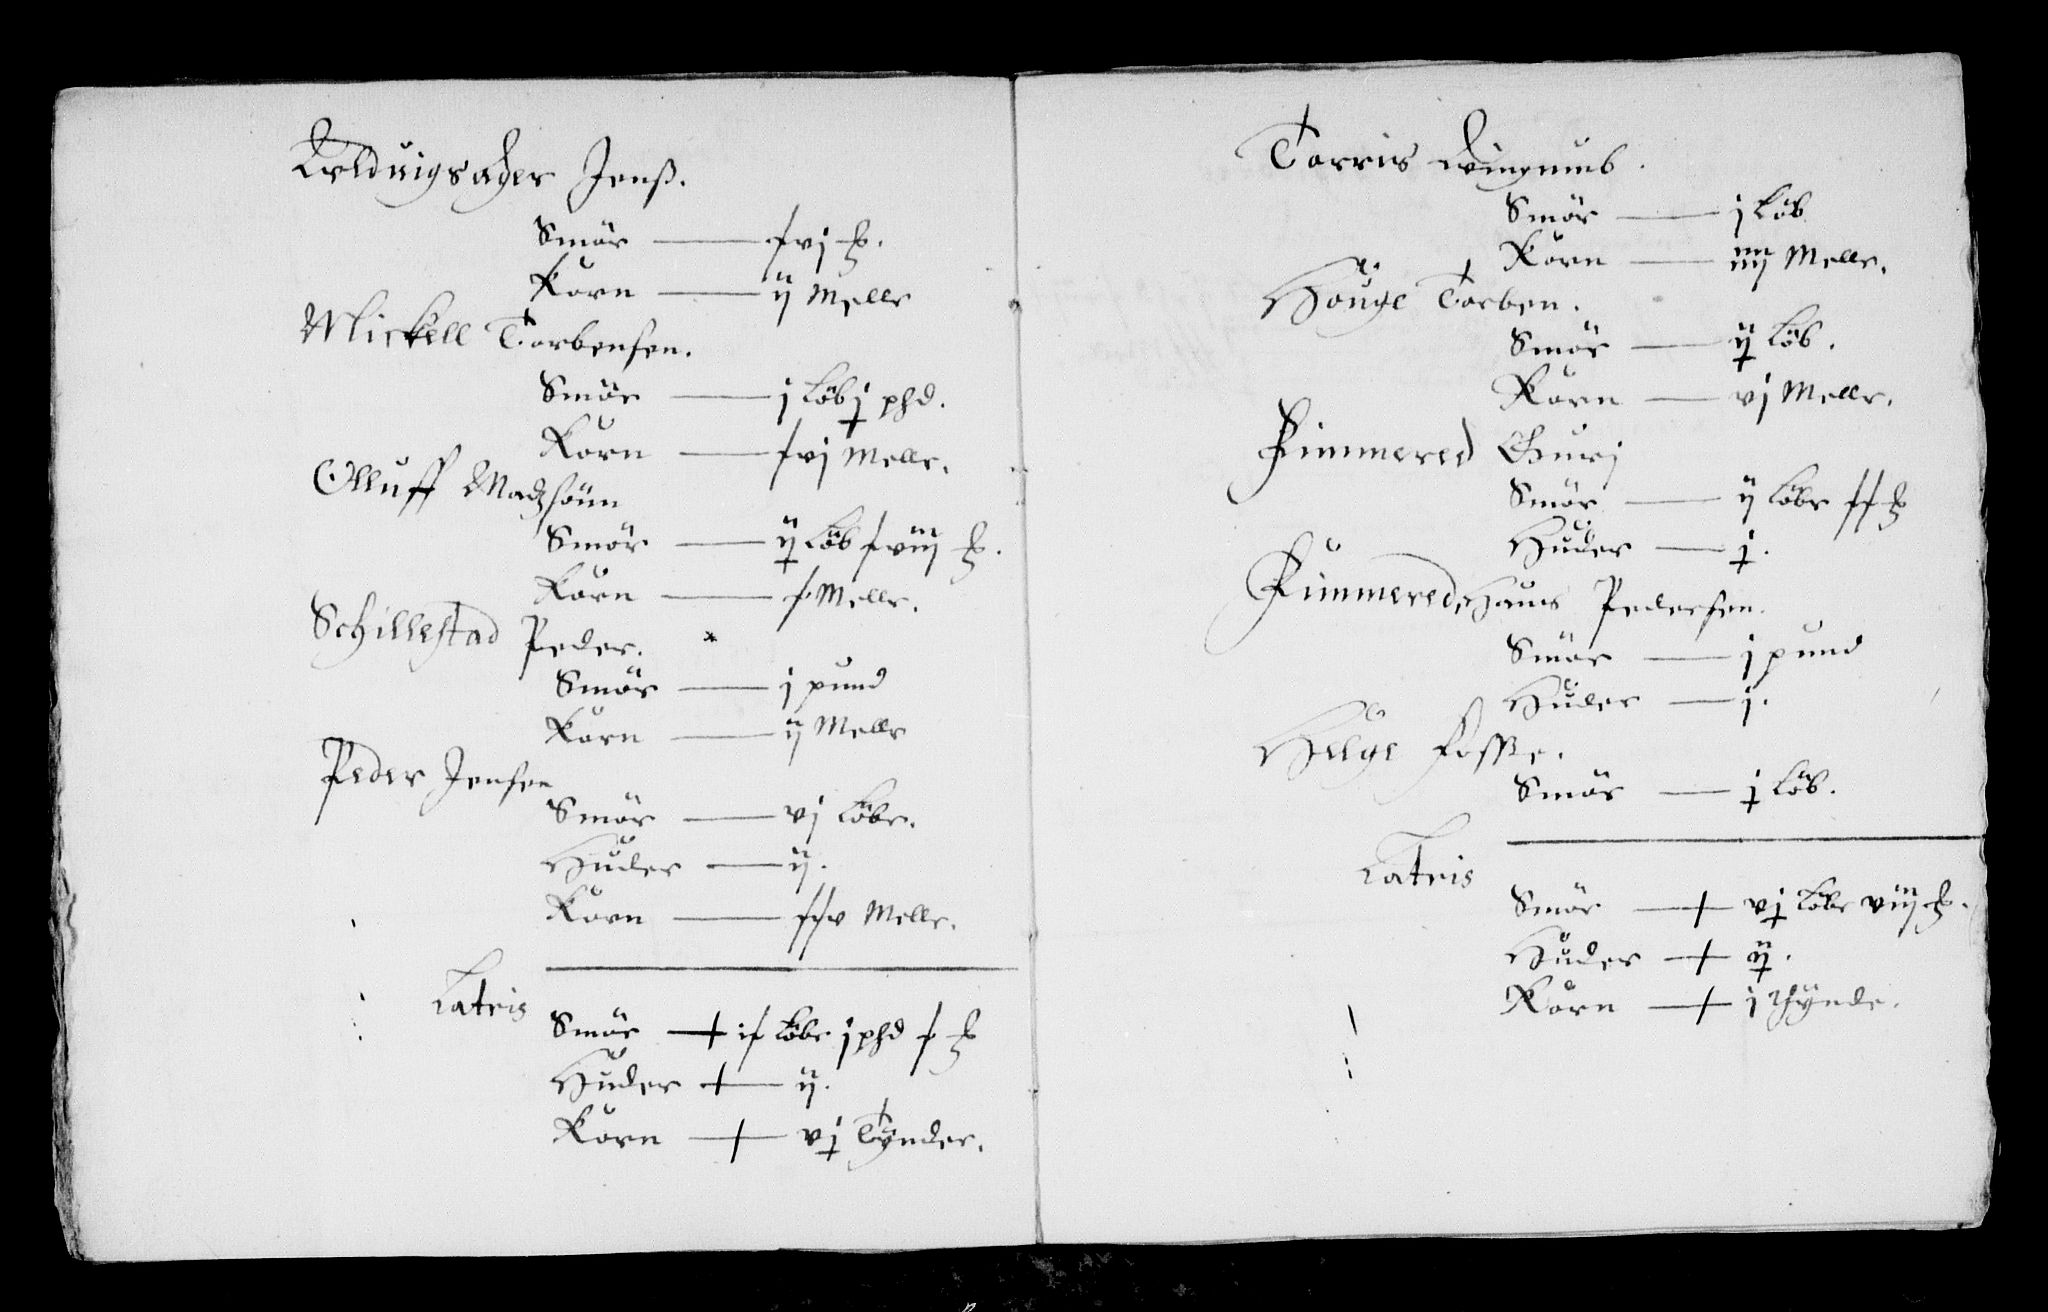 Jenß.
Smör — xvj ℔.
Korn — ij Meller
Mickell Torbensen.
Smör — j Löb j phd.
Korn — xvj Meller.
Olluff Madzsönn
Smör — ij Löb xviij ℔.
Korn — x Meller.
Schillestad Peder.
Smör — j pund
Korn — ij Meller
Peder Jensen
Smör — vj Löber.
Huder — ij.
Korn — xxv Meller.
Lateris
Smör — ix Löber j phd x ℔
Huder — ij.
Korn — vj Tynder.
Torris
Smör — j Löb
Korn — iiij Meller.
Houge Torben.
Smör — ij Löb.
Korn — vj Meller.
Rimmered Guri
Smör — ij Löber xx ℔
Huder — j.
Rimmered, Hans Pedersen.
Smör — j pund
Huder — j.
Helge Fosße.
Smör — j Löb.
Lateris
Smör — vj Löber viij ℔.
Huder — ij.
Korn — j Thynde.